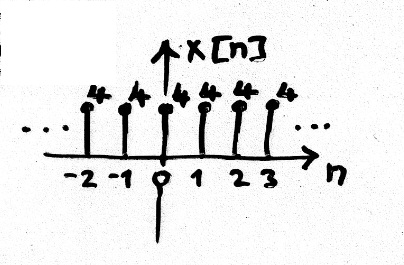 x[n]
4 4 4 4 4 4
... ...
-2 -1 0 1 2 3 n